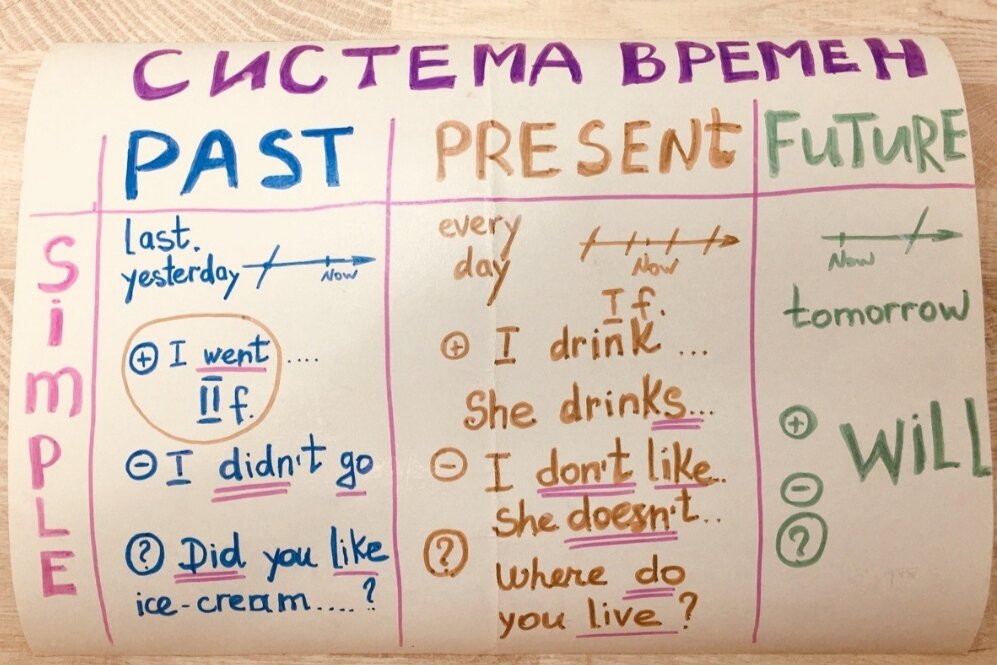 СИСТЕМА ВРЕМЕН
PAST
PRESENt
FUTURE
SiMPLE
last.
yesterday
Now
+ I went ....
II f.
- I didn't go
? Did you like
ice-cream....?
every
day
Now
I f.
+ I drink ...
She drinks...
- I don't like..
She doesn't..
? Where do
you live?
Now
tomorrow
+
-
?
WiLL